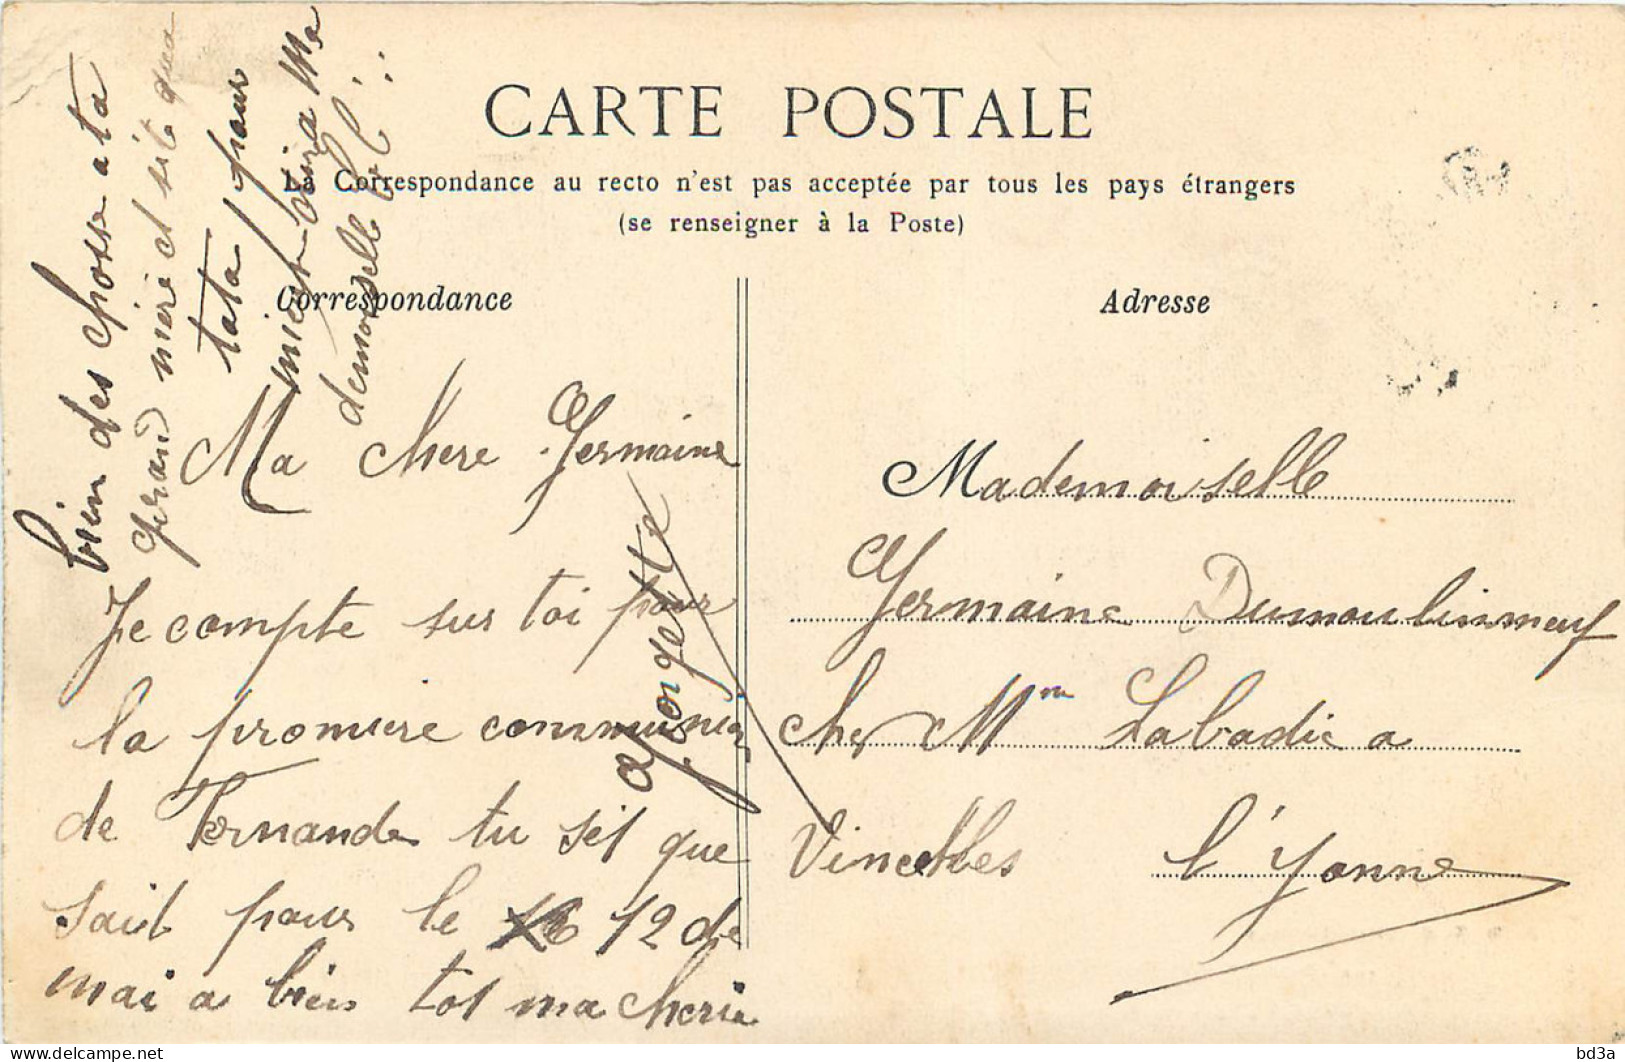 CARTE POSTALE
La Correspondance au recto n'est pas acceptée par tous les pays étrangers
(se renseigner à la Poste)
Correspondance
Adresse
bien des chosse a ta
grand mère et
tata pour
demoiselle
Ma chere Germaine
Je compte sur toi pour
la promiere communion
de Fernande tu sét que
sait pour le 12 de
mai a bien tot ma cherie
Georgette
Mademoiselle
Germaine Dumoulinneuf
chez Mme Labadie a
Vincelles l'Yonne
delcampe.net
bd3a